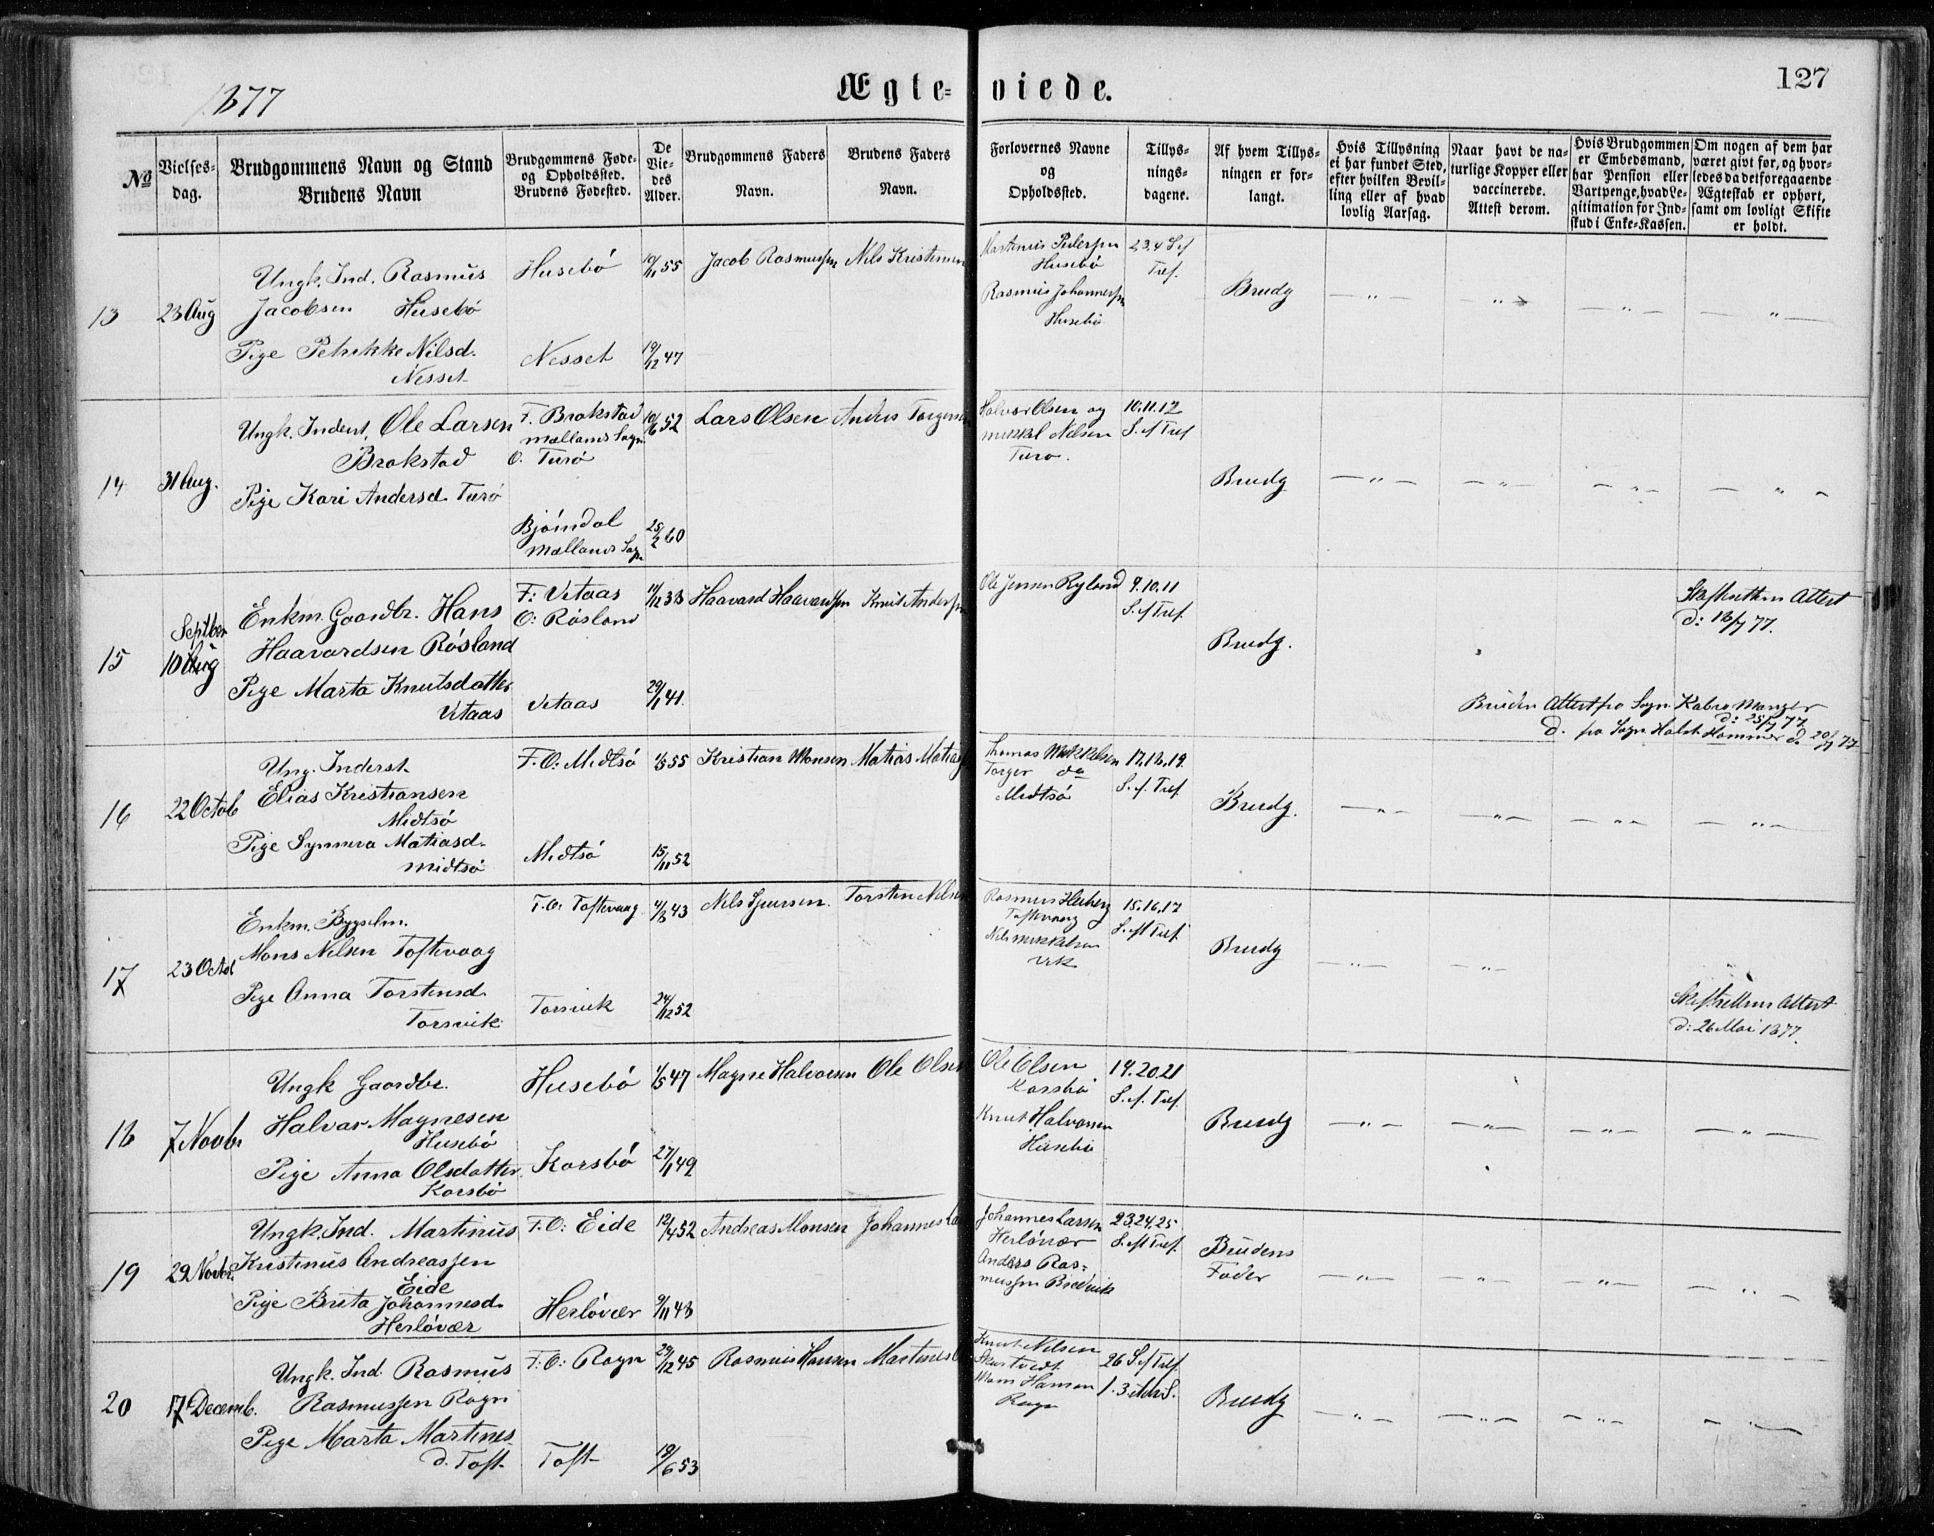 1877
Ægte= viede.
127
No
Vielses-
dag.
Brudgommens Navn og Stand
Brudens Navn
Brudgommens Føde-
og Opholdssted.
Brudens Fødested.
De
Vie-
des
Alder.
Brudgommens Faders
Navn.
Brudens Faders
Navn.
Forlovernes Navne
og
Opholdssted.
Tillys-
nings-
dagene.
Af hvem Tillys-
ningen er for-
langt.
Hvis Tillysning
ei har fundet Sted,
efter hvilken Bevil-
ling eller af hvad
lovlig Aarsag.
Naar havt de na-
turlige Kopper eller
vaccinerede.
Attest derom.
Hvis Brudgommen
er Embedsmand,
har Pension eller
Vartpenge, hvad Le-
gitimation for Ind-
skud i Enke-Kassen.
Om nogen af dem har
været givt før, og hvor-
ledes da det foregaaende
Ægteskab er ophørt,
samt om lovligt Skifte
er holdt.
13
23 Aug
Ungk. Ind. Rasmus
Jacobsen Husebö
Pige Petrikke Nilsd.
Nesset
Husebö
Nesset
19/11 55
19/12 47
Jacob Rasmussen
Nils Kristensen
Martinus Pedersen
Husebö
Rasmus Johannessen
Husebö
2.3.4 S. ef
Tref.
Brudg
— " — — " — — " — — " —
14
31 Aug.
Ungk. Inderst. Ole Larsen
Brakstad
Pige Kari Andersd. Turö
F. Brakstad
Mællands Sogn
O. Turö
Bjöindal
Mællands Sogn
10/6 52
25/2 60
Lars Olsen
Anders Torgersen
Halvor Olsen og
Mikkel Nilsen
Turo.
10.11.12
S. ef Tref
Brudg
— " — — " — — " — — " —
15
Septber
10 Aug
Enkm. Gaardbr. Hans
Haavardsen Rösland
Pige Marta Knutsdatter
Vetaas
F: Vetaas
O: Rösland
Vetaas
11/12 33
29/1 41
Haavard Haavardsen
Knut Andersen
Ole Jensen Ryland
9.10.11
S. ef Tref.
Brudg.
Skifterettens Attest
d: 18/7 77.
Bruden Attest fra Sogn. Kobro Manger
d: 25/7 77
d. fra Sogn Holst Hammer d. 20/7 77
16
22 Octob
Ung. Inderst.
Elias Kristiansen
Midtsö
Pige Synneva Matiasd.
Midtsö
F. O: Midtsö
Midtsö
1/5 55
15/11 52
Kristian Monsen
Matias Matias
Thomas Mikkelsen
Torger do
Midtsö
17.18.19.
S. ef. Tref.
Brudg.
— " — — " — — " — — " —
17
23 Octob
Enkm. Bygselm.
Mons Nilsen Toftevaag
Pige Anna Torstensd.
Torsvik.
F. O: Toftevaag
Torsvik
4/8 43
24/12 52
Nils Sjursen.
Torsten Nilsen
Rasmus Herberg
Toftevaag
Nils Mikkelsen
Vik
15.16.17
S. ef Tref.
Brudg
— " — — " —
Skifterettens Attest
d: 26 Mai 1877.
18
7 Novbr
Ungk Gaardbr.
Halvar Magnesen
Husebö
Pige Anna Olsdatter
Korsbö
Husebö
Korsbö
1/5 47
27/1 49
Magne Halvorsen
Ole Olsen
Ole Olsen
Korsbö
Knut Halvorsen
Husebö
19.20.21
S. ef. Tref.
Brudg
— " — — " — — " — — " —
19
29 Novbr.
Ungk. Ind. Martinus
Kristinus Andreassen
Eide
Pige Brita Johannesd.
Herlövær
F. O: Eide
Herlövær
12/4 52
9/11 48
Andreas Monsen
Johannes La
Johannes Larsen
Herlövær
Anders Ras-
mussen Bredvik
23.24.25
S. ef Tref.
Brudens
Fader
— " — — " — — " — — " —
20
17 Decemb.
Ungk. Ind. Rasmus
Rasmussen Rogn
Pige Marta Martines
d. Toft
F: O: Rogn
Toft
29/12 45
19/6 53
Rasmus Hansen
Martines
Knut Nilsen
Skurtvedt
Mons Hansen
Rogn
26 S. ef Tref
1. 3 i Adv. S.
Brudg
— " — — " — — " — — " —